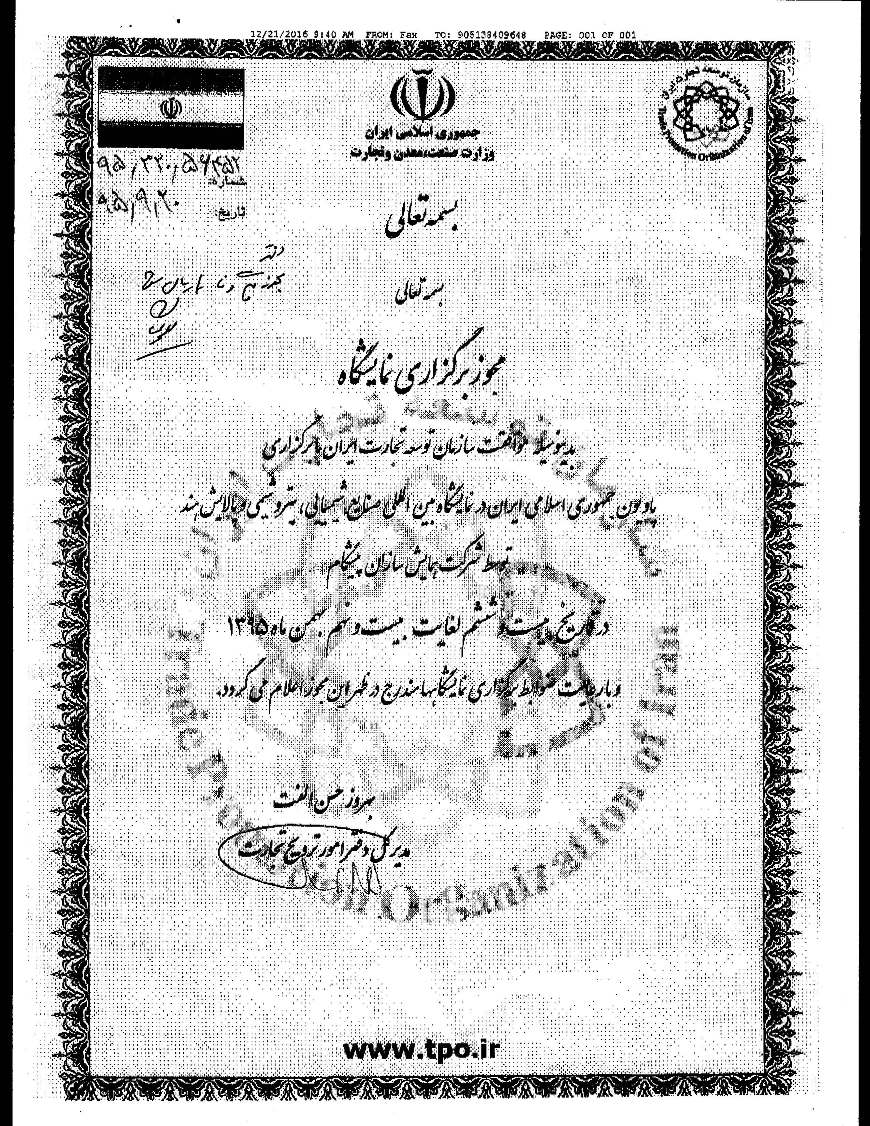 12/21/2016 9:40 AM FROM: Fax TO: 905138409648 PAGE: 001 OF 001
جمهوری اسلامی ایران
وزارت صنعت، معدن و تجارت
سازمان توسعه تجارت ایران
Trade Promotion Organization of Iran
شماره:
تاریخ: ۹۵/۹/۲۰
بسمه تعالی
بسمه تعالی
مجوز برگزاری نمایشگاه
بدینوسیله موافقت سازمان توسعه تجارت ایران با برگزاری
پاویون جمهوری اسلامی ایران در نمایشگاه بین المللی صنایع شیمیایی، پتروشیمی و پالایش هند
توسط شرکت همایش سازان پیشگام
در تاریخ بیست و ششم لغایت بیست و نهم بهمن ماه ۱۳۹۵
و با رعایت ضوابط برگزاری نمایشگاهها مندرج در ظهر این مجوز اعلام می گردد.
بهروز حسن الفت
مدیر کل دفتر امور ترویج تجارت
www.tpo.ir